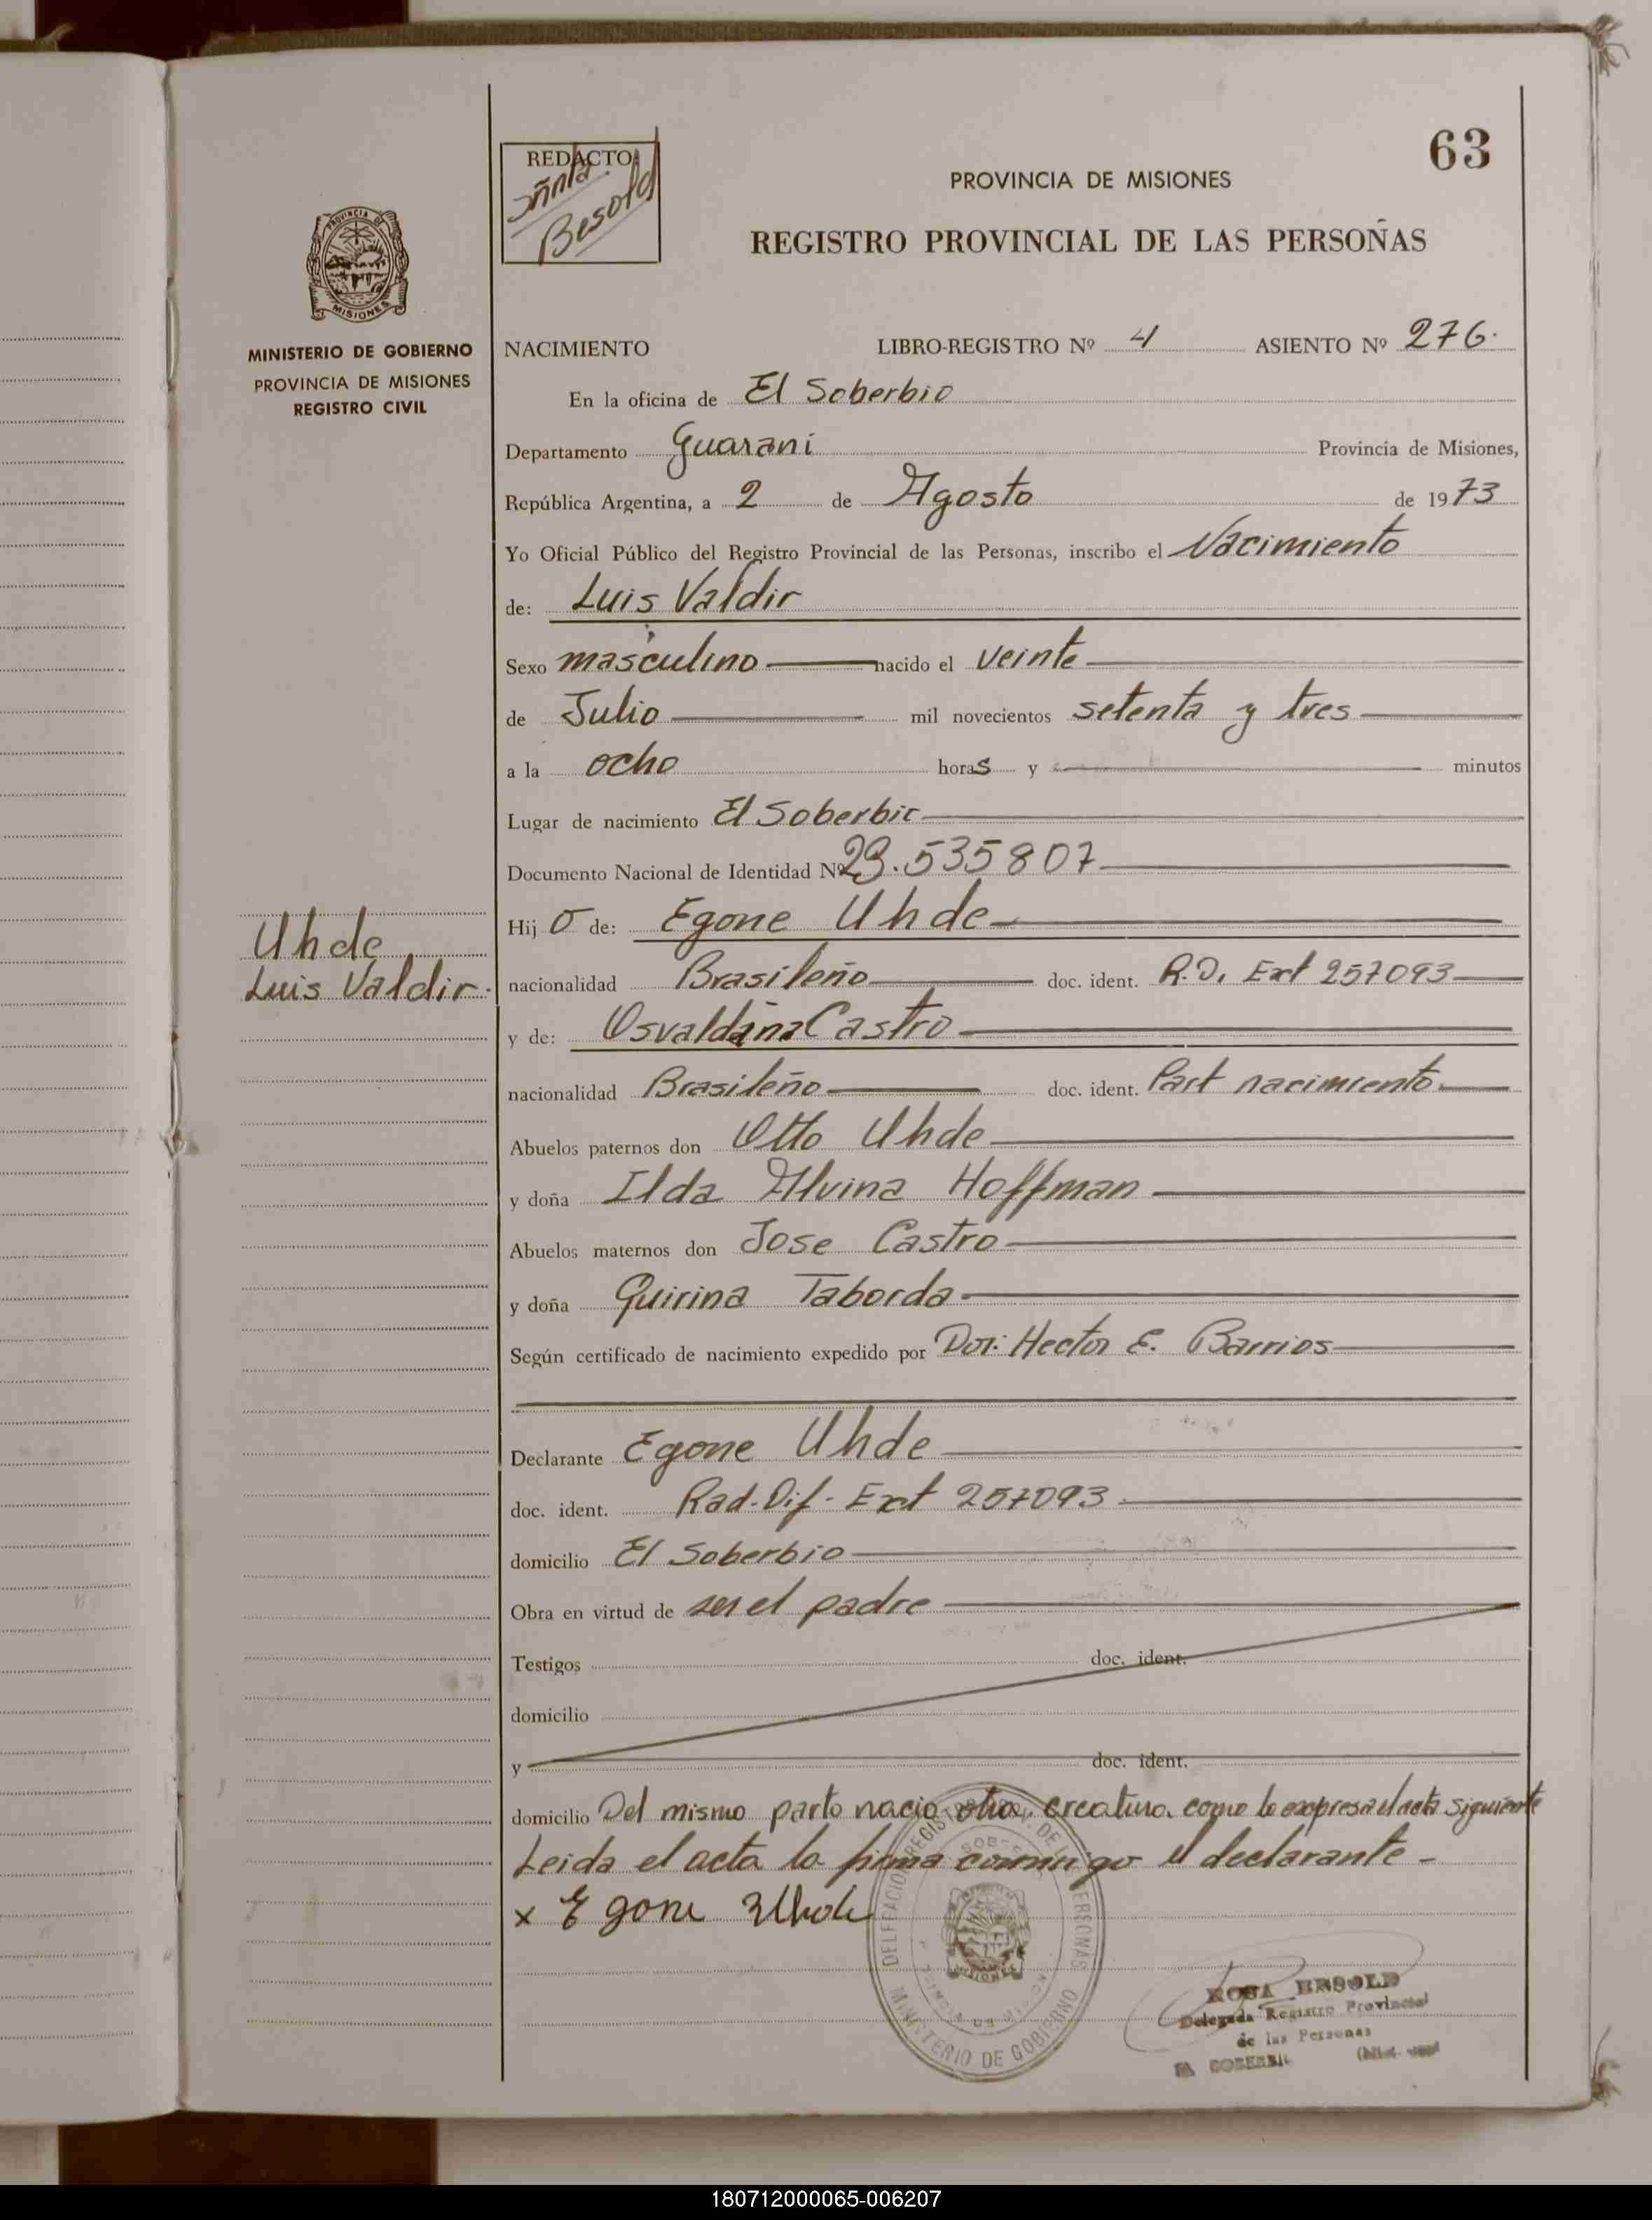 63
REDACTO
Besold
PROVINCIA DE MISIONES
REGISTRO PROVINCIAL DE LAS PERSOÑAS
PROVINCIA DE
MISIONES
MINISTERIO DE GOBIERNO
PROVINCIA DE MISIONES
REGISTRO CIVIL
NACIMIENTO LIBRO-REGISTRO Nº 4 ASIENTO Nº 276.
En la oficina de El Soberbio
Departamento Guarani Provincia de Misiones,
República Argentina, a 2 de Agosto de 1973
Yo Oficial Público del Registro Provincial de las Personas, inscribo el Nacimiento
de: Luis Valdir
Sexo masculino nacido el veinte
de Julio mil novecientos setenta y tres
a la ocho horas y minutos
Lugar de nacimiento El Soberbio
Documento Nacional de Identidad Nº 23.535807
Hijo de: Egone Uhde
Uhde
Luis Valdir.
nacionalidad Brasileño doc. ident. R.D. Ext 257093
y de: Osvaldina Castro
nacionalidad Brasileño doc. ident. Part nacimiento
Abuelos paternos don Otto Uhde
y doña Ilda Alvina Hoffman
Abuelos maternos don Jose Castro
y doña Quirina Taborda
Según certificado de nacimiento expedido por Dor: Hector E. Barrios
Declarante Egone Uhde
doc. ident. Rad. Dif- Ext 257093
domicilio El Soberbio
Obra en virtud de ser el padre
Testigos doc. ident.
domicilio
y doc. ident.
domicilio Del mismo parto nacio otra creatura como lo expresa el acta siguiente
Leida el acta la firma conmigo el declarante -
x Egone Uhde
MINISTERIO DE GOBIERNO
ROSA BESOLD
Delegada Registro Provincial
de las Personas
EL SOBERBIO
180712000065-006207